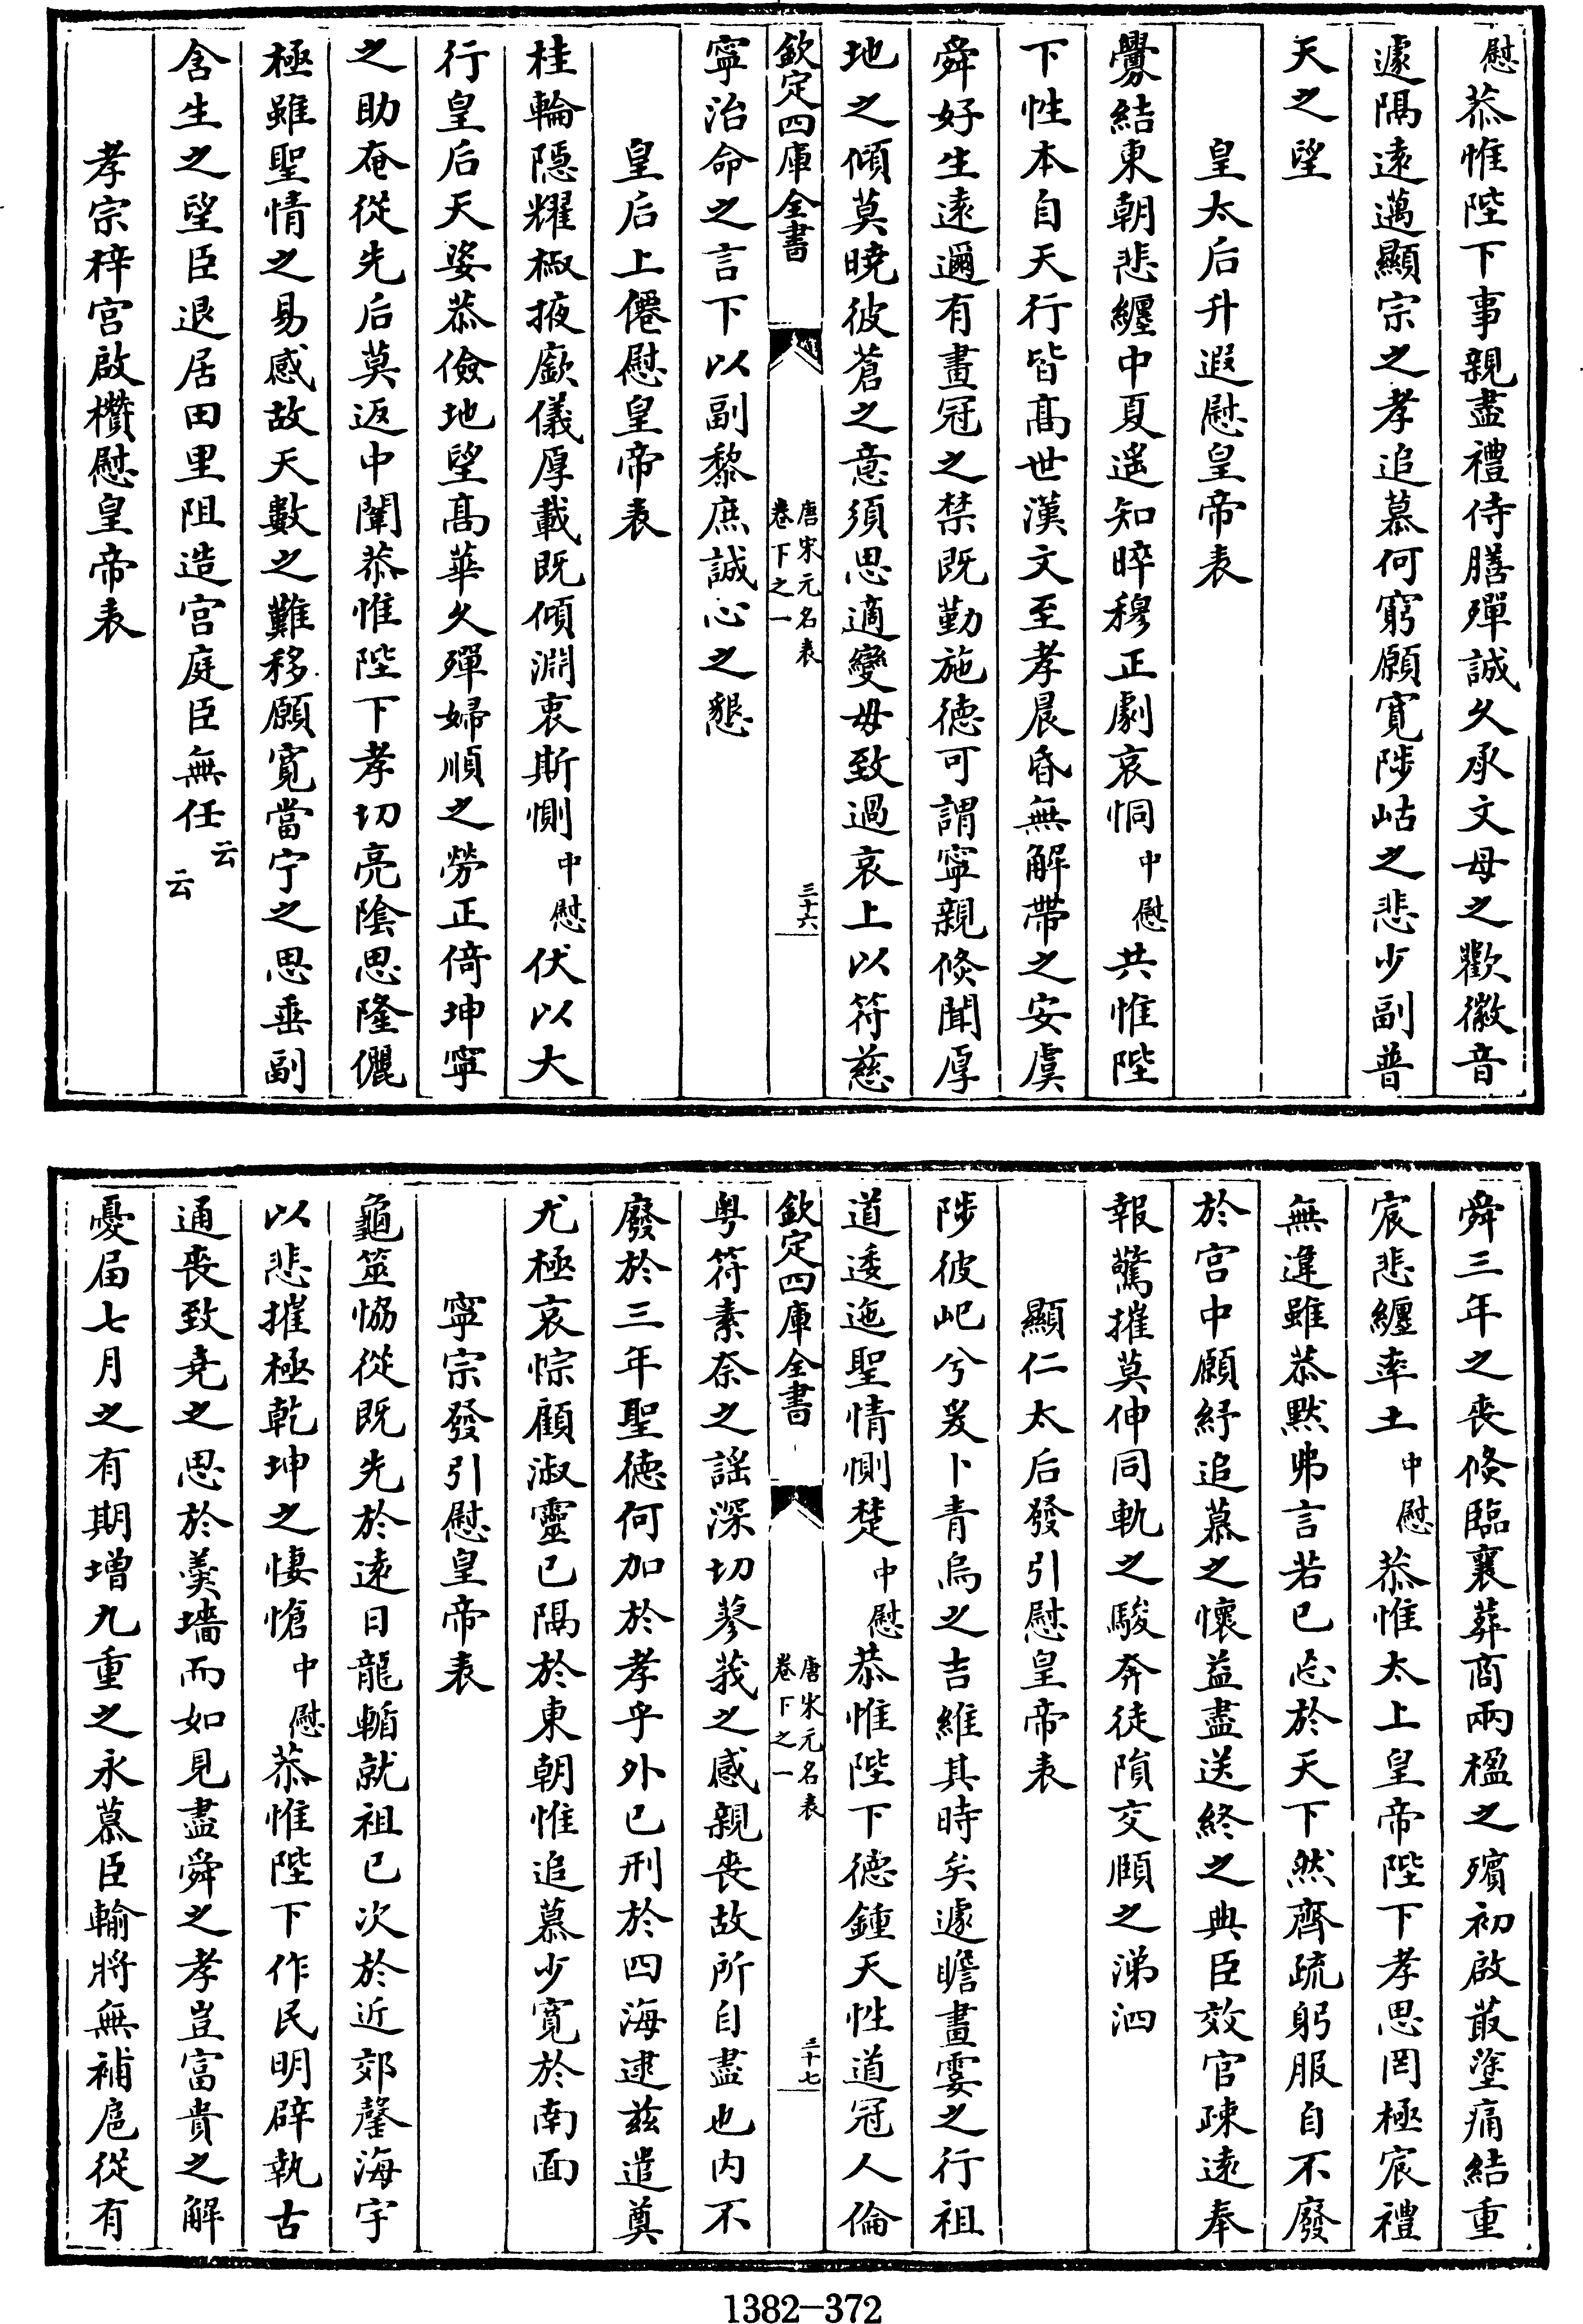 慰恭惟陛下事親盡禮侍膳殫誠久承文母之歡徽音
遽隔遠邁顯宗之孝追慕何窮願寛陟岵之悲少副普
天之望
皇太后升遐慰皇帝表
釁結東朝悲纏中夏遥知晬穆正劇哀恫中慰共惟陛
下性本自天行皆髙世漢文至孝晨昏無解帶之安虞
舜好生遠邇有畫冠之禁既勤施徳可謂寧親倏聞厚
地之傾莫曉彼蒼之意須思適變毋致過哀上以符慈
欽定四庫全書
唐宋元名表
卷下之一
三十六
寧治命之言下以副黎庶誠心之懇
皇后上僊慰皇帝表
桂輪隠耀椒掖廞儀厚載既傾淵衷斯惻中慰伏以大
行皇后天姿恭儉地望髙華久殫婦順之勞正倚坤寧
之助奄從先后莫返中闈恭惟陛下孝切亮陰思隆儷
極雖聖情之易感故天數之難移願寛當宁之思垂副
含生之望臣退居田里阻造宫庭臣無任云云
孝宗梓宫啟欑慰皇帝表
舜三年之喪倏臨襄葬商兩楹之殯初啟菆塗痛結重
宸悲纏率土中慰恭惟太上皇帝陛下孝思罔極宸禮
無違雖恭黙弗言若已忘於天下然齊疏躬服自不廢
於宫中願紓追慕之懷益盡送終之典臣效官疎遠奉
報驚摧莫伸同軌之駿奔徒隕交頤之涕泗
顯仁太后發引慰皇帝表
陟彼屺兮爰卜青烏之吉維其時矣遽瞻畫霎之行祖
道逶迤聖情惻楚中慰恭惟陛下徳鍾天性道冠人倫
欽定四庫全書
唐宋元名表
卷下之一
三十七
粤符素奈之謡深切蓼莪之感親喪故所自盡也内不
廢於三年聖徳何加於孝乎外已刑於四海逮兹遣奠
尤極哀悰顧淑靈已隔於東朝惟追慕少寛於南面
寧宗發引慰皇帝表
龜筮恊從既先於逺日龍輴就祖已次於近郊罄海宇
以悲摧極乾坤之悽愴中慰恭惟陛下作民明辟執古
通喪致堯之思於羮墻而如見盡舜之孝豈富貴之解
憂届七月之有期增九重之永慕臣輸將無補扈從有
1382-372